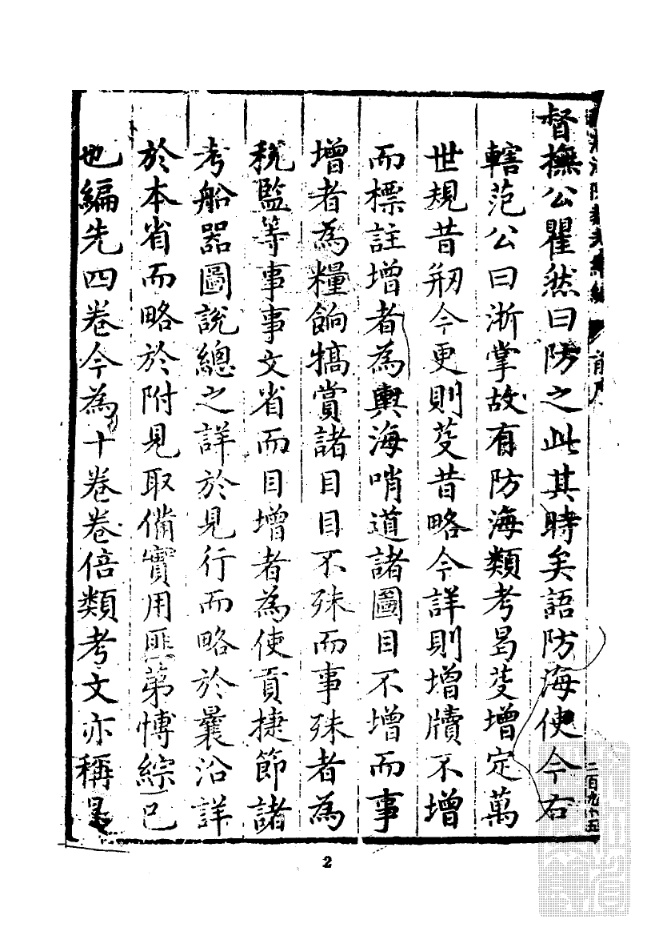 督撫公瞿然曰防之此其時矣語防海使今右
轄范公曰浙掌故有防海類考曷芟增定萬
世規昔剏今更則芟昔略今詳則增牘不增
而標註增者為輿海哨道諸圖目不增而事
增者為糧餉犒賞諸目目不殊而事殊者為
稅監等事事文省而目增者為使貢捷節諸
考船器圖說總之詳於見行而略於曩沿詳
於本省而略於附見取備實用匪第愽綜已
也編先四卷今為十卷卷倍類考文亦稱是
二百九十五
2